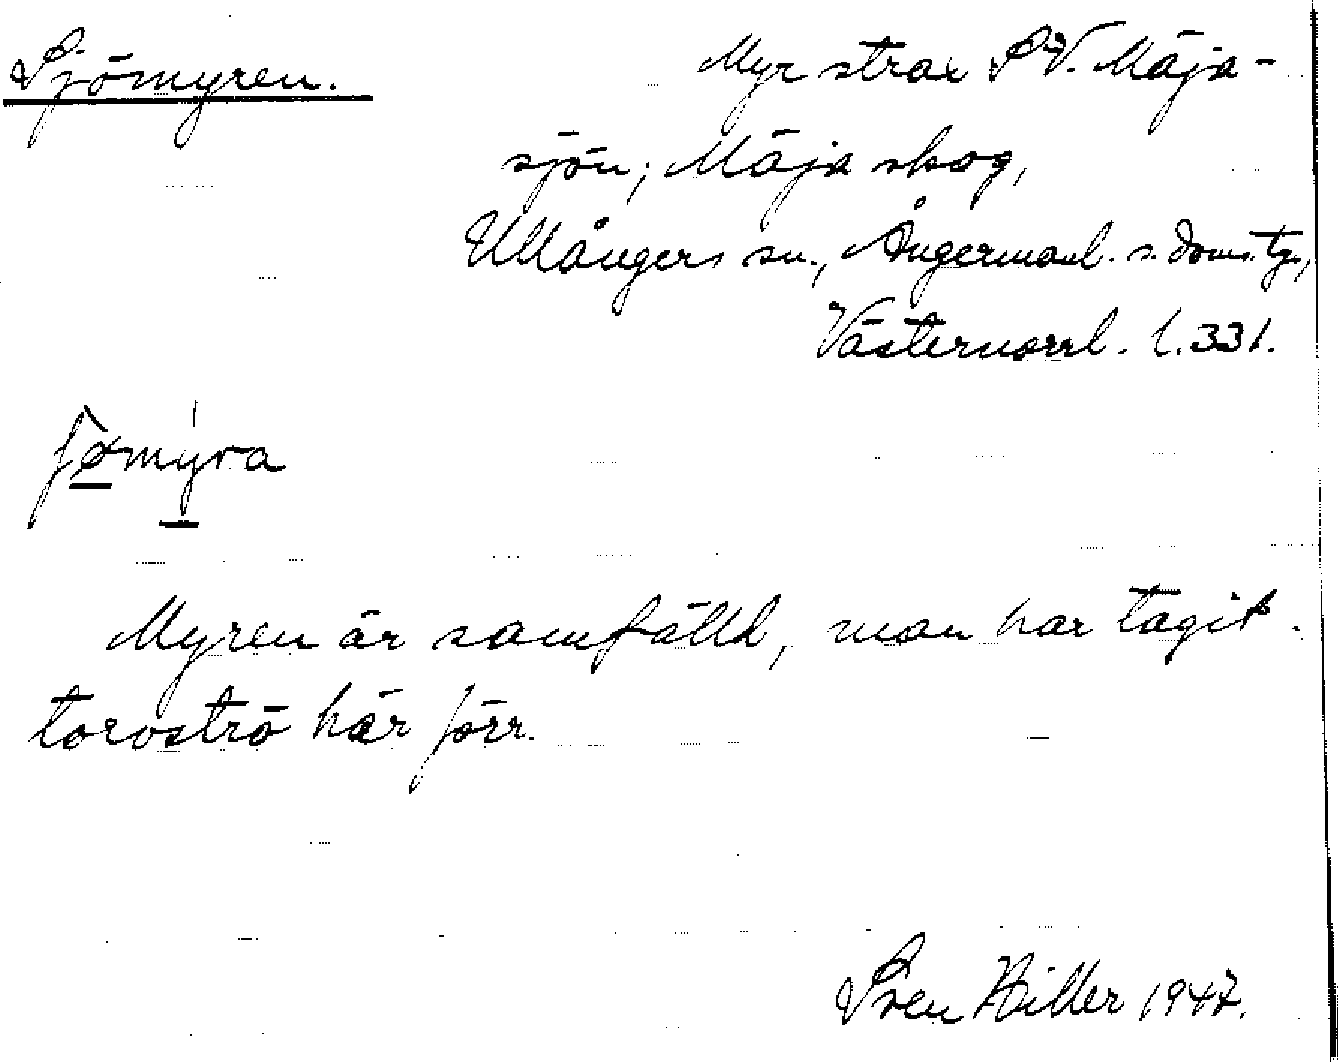 Sjömyren.
Myr strax S V. Mäja-
sjön; Mäja skog,
Ullångers sn., Ångermanl. s. doms.tg.,
Västernorrl. l. 331.
ʃømyra
Myren är samfälld, man har tagit
torvströ här förr.
Sven Hiller 1947.